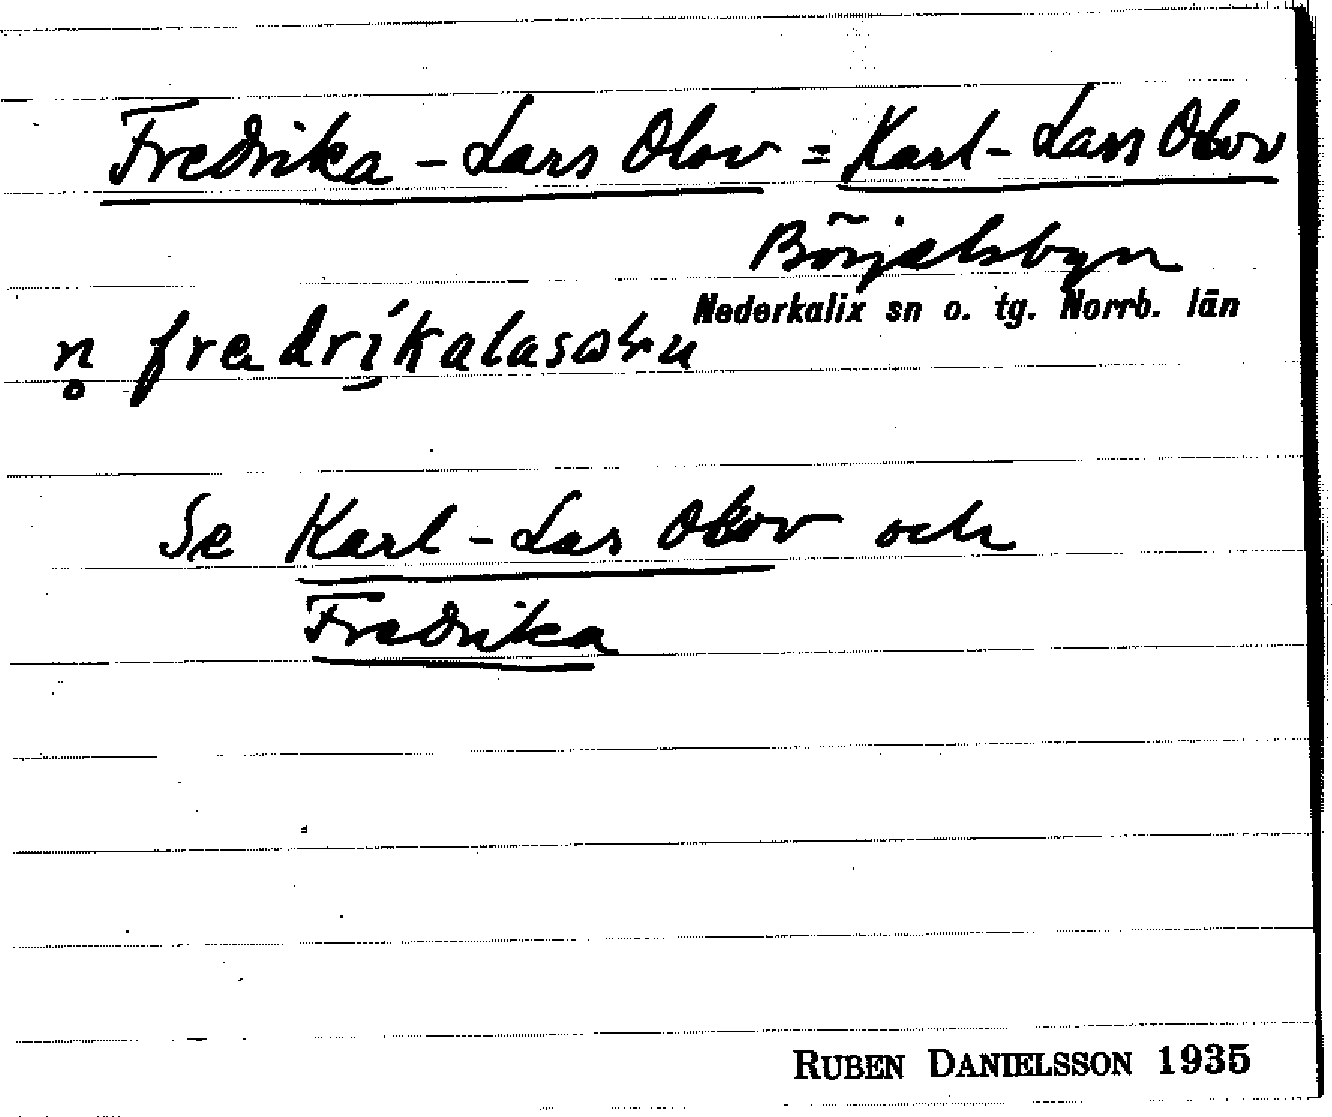 Fredrika - Lars Olov = Karl - Lars Olov
Börjelsbyn
Nederkalix sn o. tg. Norrb. län
n̥ fredrí̱kalasolu
Se Karl - Lars Olov och
Fredrika
RUBEN DANIELSSON 1935